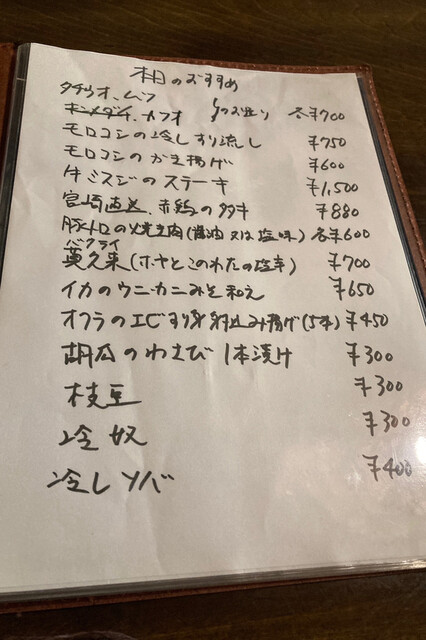 本日のおすすめ
タチウオ、ムツ
キンメダイ、カツオ のお造り 各¥700
モロコシの冷しすり流し ¥750
モロコシのかき揚げ ¥600
牛ミスジのステーキ ¥1,500
宮崎直送、赤鶏のタタキ ¥880
豚トロの焼き肉(醤油又は塩味) 各¥600
バクライ
莫久来(ホヤとこのわたの塩辛) ¥700
イカのウニカニみそ和え ¥650
オクラのエビすり身射込み揚げ(5本) ¥450
胡瓜のわさび1本漬け ¥300
枝豆 ¥300
冷奴 ¥300
冷しソバ ¥400